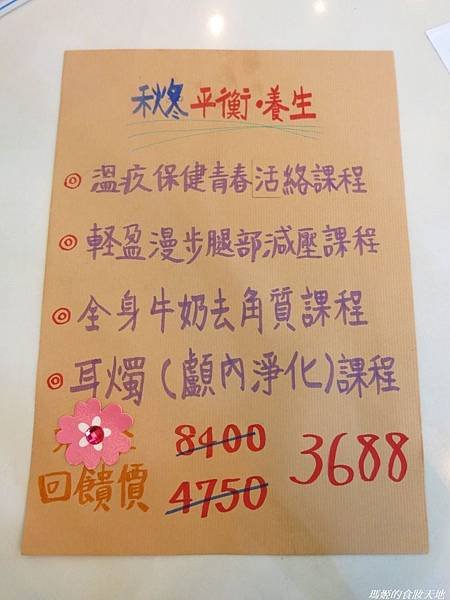 秋冬平衡·養生
◎溫疚保健青春活絡課程
◎輕盈漫步腿部減壓課程
◎全身牛奶去角質課程
◎耳燭(顱內淨化)課程
8400
回饋價 4750 3688
瑪姬的食妝天地